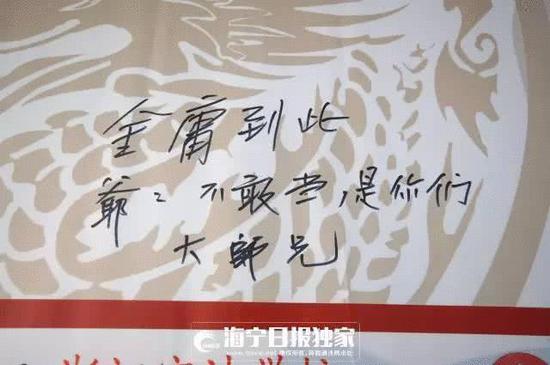 金庸到此
爺〻不敢当,是你们
大師兄
海宁日报独家